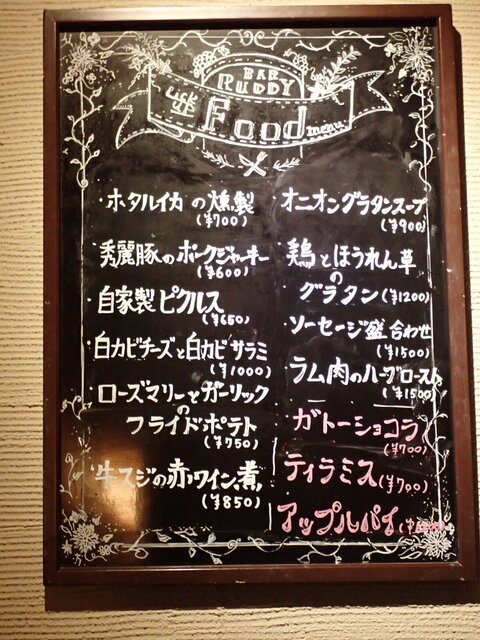 BAR
RUDDY
Food
menu
・ホタルイカの燻製
(¥700)
・秀麗豚のポークジャーキー
(¥600)
・自家製ピクルス
(¥650)
・白カビチーズと白カビサラミ
(¥1000)
・ローズマリーとガーリック
の
フライドポテト
(¥750)
・牛スジの赤ワイン煮
(¥850)
・オニオングラタンスープ
(¥900)
・鶏とほうれん草
の
グラタン(¥1200)
・ソーセージ盛合わせ
(¥1500)
・ラム肉のハーブロースト
(¥1500)
・ガトーショコラ
(¥700)
・ティラミス(¥700)
・アップルパイ